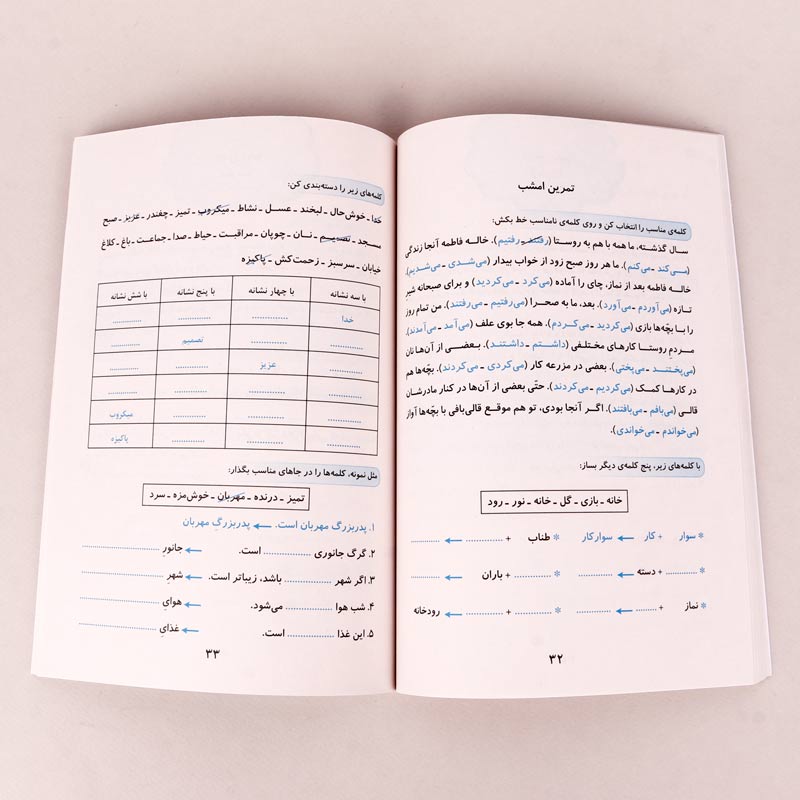 تمرین امشب
کلمه‌ی مناسب را انتخاب کن و روی کلمه‌ی نامناسب خط بکش:
سال گذشته، ما همه با هم به روستا (رفتند ـ رفتیم). خاله فاطمه آنجا زندگی
(می‌کند ـ می‌کنم). ما هر روز صبح زود از خواب بیدار (می‌شدی ـ می‌شدیم).
خاله فاطمه بعد از نماز، چای را آماده (می‌کرد ـ می‌کردید) و برای صبحانه شیر
تازه (می‌آوردم ـ می‌آورد). بعد، ما به صحرا (می‌رفتیم ـ می‌رفتند). من تمام روز
را با بچّه‌ها بازی (می‌کردید ـ می‌کردم). همه جا بوی علف (می‌آمد ـ می‌آمدند).
مردم روستا کارهای مختلفی (داشتم ـ داشتند). بعضی از آن‌ها نان
(می‌پختند ـ می‌پختی). بعضی در مزرعه کار (می‌کردی ـ می‌کردند). بچّه‌ها هم
در کارها کمک (می‌کردیم ـ می‌کردند). حتّی بعضی از آن‌ها در کنار مادرشان
قالی (می‌بافم ـ می‌بافتند). اگر آنجا بودی، تو هم موقع قالی‌بافی با بچّه‌ها آواز
(می‌خواندم ـ می‌خواندی).
با کلمه‌های زیر، پنج کلمه‌ی دیگر بساز:
خانه ـ بازی ـ گل ـ خانه ـ نور ـ رود
* سوار + کار ← سوارکار * طناب + ............ ← ............
* ............ + دسته ← ............ * ............ + باران ← ............
* نماز + ............ ← ............ * ............ + ............ ← رودخانه
۳۲
کلمه‌های زیر را دسته‌بندی کن:
خدا ـ خوش‌حال ـ لبخند ـ عسل ـ نشاط ـ میکروب ـ تمیز ـ چغندر ـ عزیز ـ صبح
مسجد ـ تصمیم ـ نان ـ چوپان ـ مراقبت ـ حیاط ـ صدا ـ جماعت ـ باغ ـ کلاغ
خیابان ـ سرسبز ـ زحمت‌کش ـ پاکیزه
با سه نشانه با چهار نشانه با پنج نشانه با شش نشانه
خدا ............ ............ ............
............ ............ تصمیم ............
............ عزیز ............ ............
............ ............ ............ ............
............ ............ ............ میکروب
............ ............ ............ پاکیزه
مثل نمونه، کلمه‌ها را در جاهای مناسب بگذار:
تمیز ـ درنده ـ مهربان ـ خوش‌مزه ـ سرد
۱. پدربزرگ مهربان است. ← پدربزرگِ مهربان
۲. گرگ جانوری ............ است. ← جانورِ ............
۳. اگر شهر ............ باشد، زیباتر است. ← شهرِ ............
۴. شب هوا ............ می‌شود. ← هوایِ ............
۵. این غذا ............ است. ← غذایِ ............
۳۳